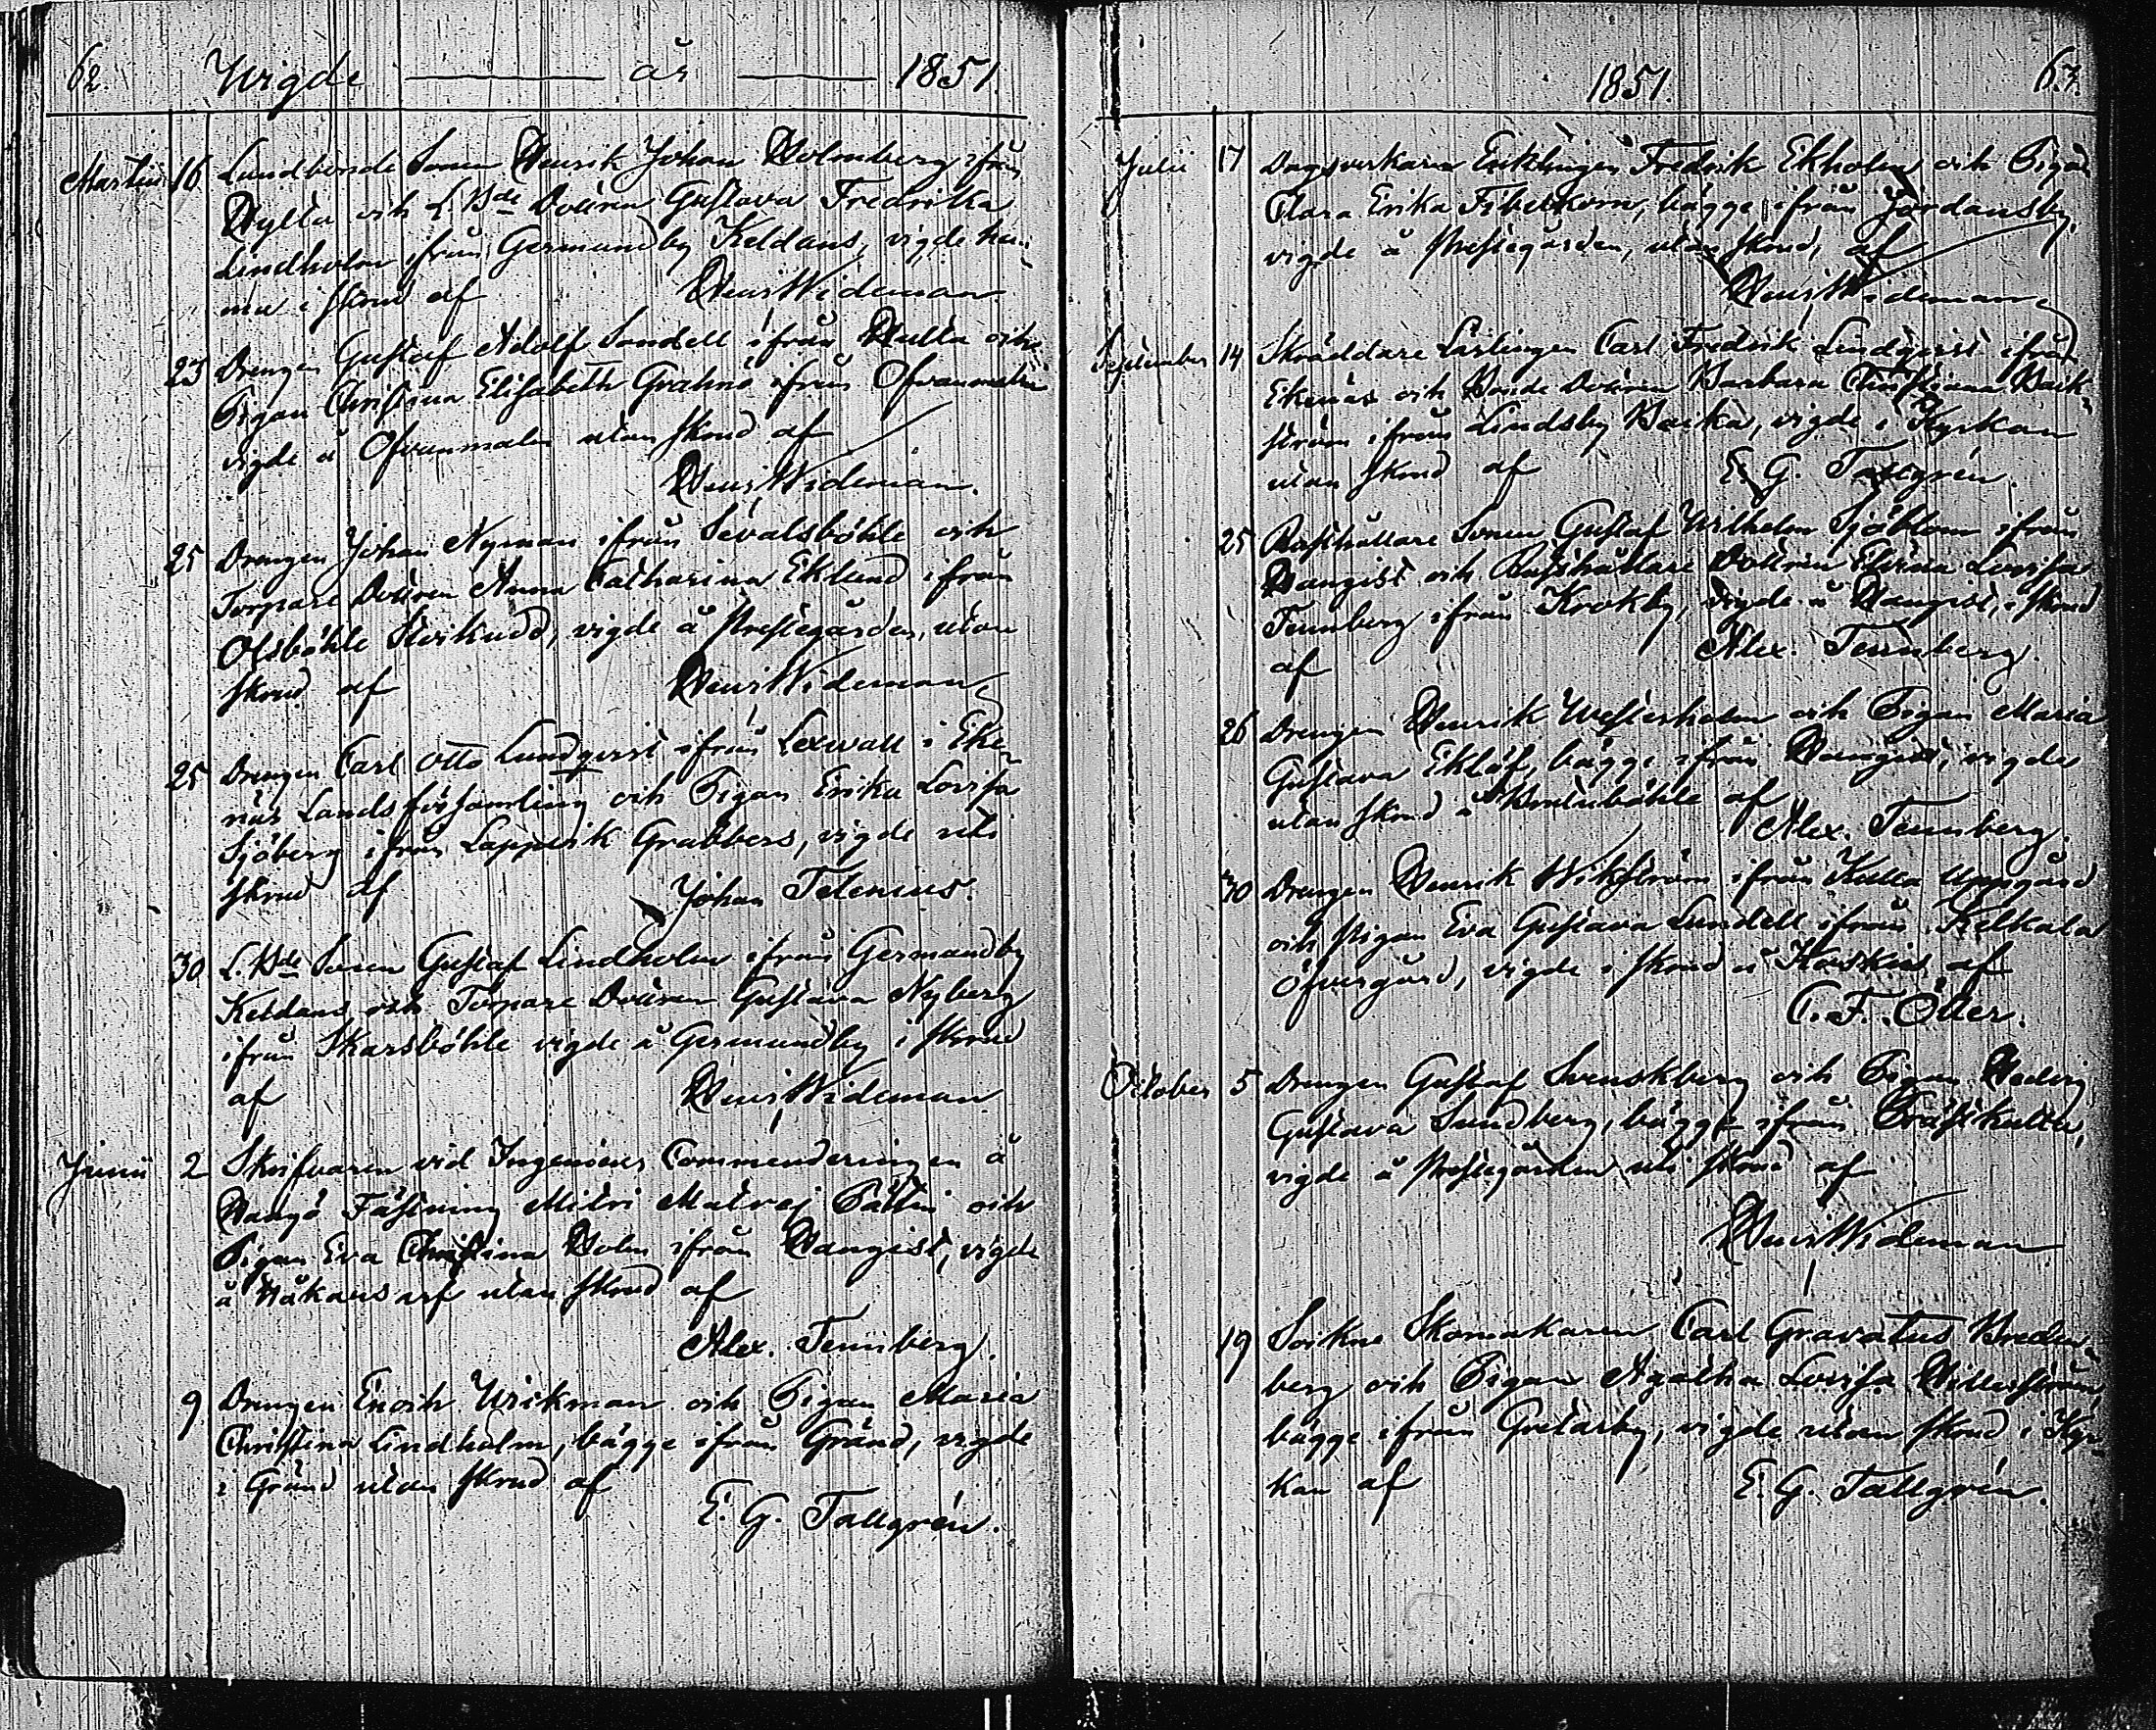 62. Wigde år 1851.
Martii 16 Landbonde Sonen Henrik Johan Holmberg ifrån
Hylta och L. Bde Dottren Gustava Fredrika
Lindholm ifrån Germundby Keldans, vigde hem-
ma i skrud af Henr Wideman.
23 Drengen Gustaf Adolf Sandell ifrån och
Pigan Christina Elisabeth Grahnö ifrån Ofvanmalm
vigde å Ofvanmalm utan skrud af
Henr Wideman.
25 Drengen Johan Nyman ifrån Sevalsböhle och
Torpare Dottren Anna Catharina Eklund ifrån
Olsböhle vigde å Prestegården, utan
skrud af Henr Wideman
25 Drengen Carl Otto Lundqvist ifrån Lexvall i Eke-
näs Landsförsamling och Pigan Erika Lovisa
Sjöberg ifrån Lappvik Grabbers, vigde uti
skrud af Johan Telenius.
30 L. Bde Sonen Gustaf Lindholm ifrån Germundby
Keldans och Torpare Dottren Gustava Nyberg
ifrån Skarsböhle vigde å Germundby i skrud
af Henr Wideman
Junii 2 Skrifvaren vid Ingenieurs Commenderingen å
Hangö Fästning Mitri Matvej och
Pigan Eva Christina Holm ifrån Hangist, vigde
å Håkansarf utan skrud af
Alex. Tennberg.
9 Drengen Enoch Wikman och Pigan Maria
Christina Lindholm, bägge ifrån Gränd, vigde
i Gränd utan skrud af
E. G. Tallgrén.
1851. 63.
Julii 17 Dagsverkaren Enklingen Fredrik Ekholm och Pigan
Clara Erika Fibelkorn, bägge ifrån Jordansby,
vigde å Prestegården, utan skrud, af
Henr Wideman
September 14 Skräddare Lärlingen Carl Fredrik Lindqvist ifrån
Ekenäs och Bonde Dottren Barbara Christiana Back-
ström ifrån Lindsby Backa, vigde i Kyrkan
utan skrud af E. G. Tallgrén.
25 Rusthållare Sonen Gustaf Wilhelm Sjöblom ifrån
Hangist och Rusthållare Dottren Elvina Lovisa
Tennberg ifrån Krokby, vigde å Hangist, i skrud
af Alex. Tennberg.
26 Drengen Henrik Westerholm och Pigan Maria
Gustava Eklöf, bägge ifrån Hangist, vigde
utan skrud å af
Alex. Tennberg.
30 Drengen Henrik Wikström ifrån Kulla Uppgård
och Pigan Eva Gustava Lundell ifrån Kelkala
Öfvergård, vigde i skrud å Koskis af
C. F. Öller.
October 5 Drengen Gustaf Svenskberg och Pigan Hedvig
Gustava Sundberg, bägge ifrån Träskkulla,
vigde å Prestegården uti skrud af
Henr Wideman
19 Sockne Skomakaren Carl Gravatus Breden-
berg och Pigan Agatha Lovisa
bägge ifrån Gretarby, vigde utan skrud i Kyr-
kan af E. G. Tallgrén.